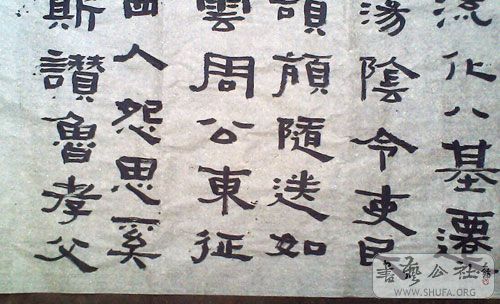 流化八基遷
蕩陰令吏民
頡頏隨送如
雲周公東征
西人怨思奚
斯讚魯孝父
書藝公社
WWW.SHUFA.ORG